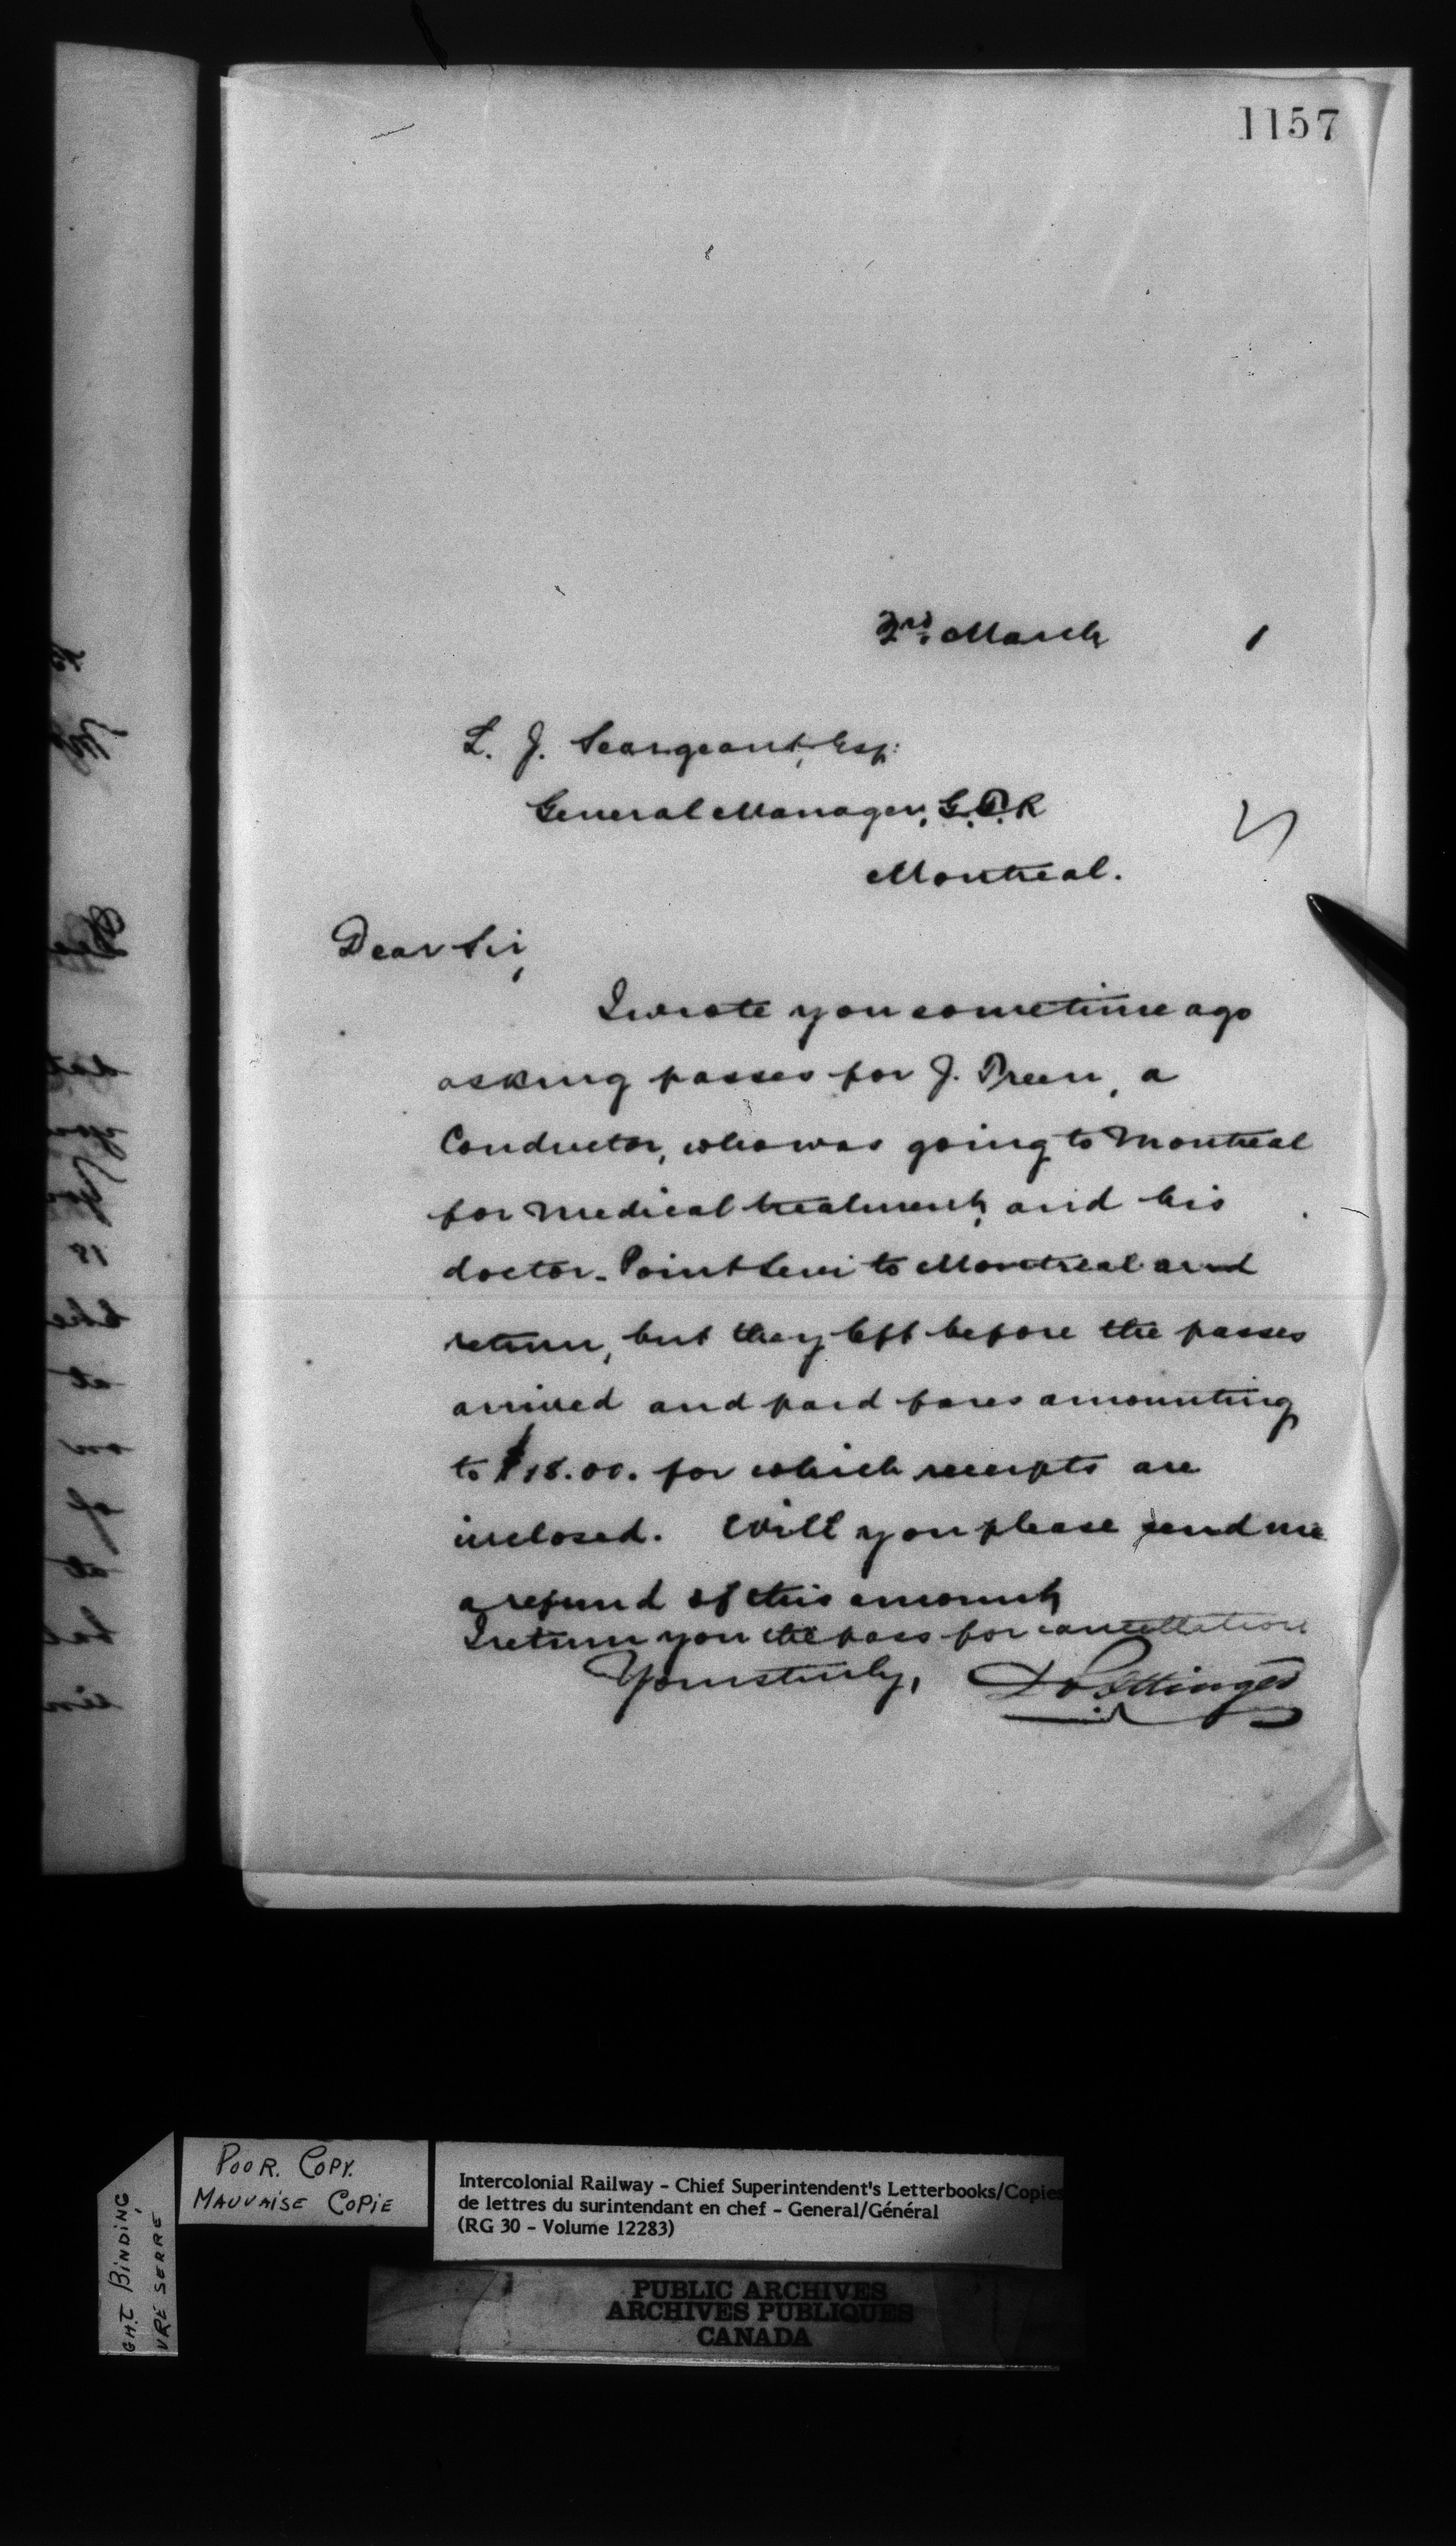 1157
3rd March 1
L. J. Seargeant, Esq:
General Manager, G.T.R
Montreal.
Dear Sir,
I wrote you sometime ago
asking passes for J. Preen, a
Conductor, who was going to Montreal
for medical treatment, and his
doctor - Point Levi to Montreal and
return, but they left before the passes
arrived and paid fares amounting
to $18.00. for which receipts are
inclosed. Will you please send me
a refund of this amount,
I return you the pass for cancellation
Yours truly, D Pottinger
POOR. COPY.
MAUVAISE COPIE
GHT BINDING
VRE SERRE
Intercolonial Railway - Chief Superintendent's Letterbooks/Copies
de lettres du surintendant en chef - General/Général
(RG 30 - Volume 12283)
PUBLIC ARCHIVES
ARCHIVES PUBLIQUES
CANADA